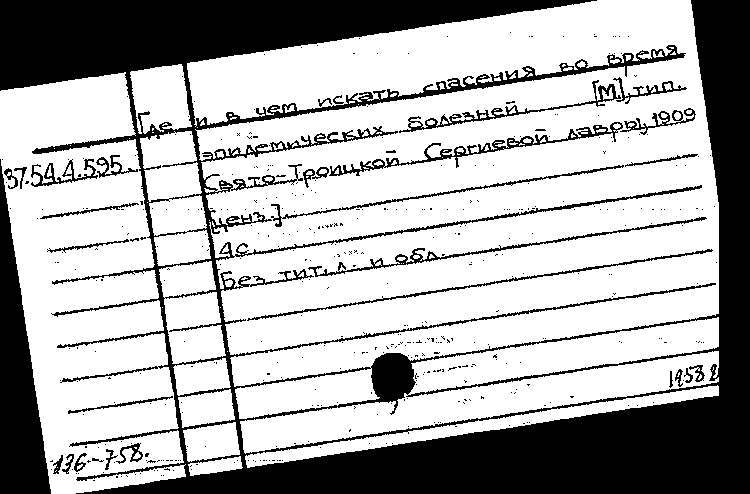 Где и в чем искать спасения во время
эпидемических болезней. [М], тип.
37.54.4.595.
Свято-Троицкой Сергиевой лавры, 1909
[ценз.].
4с.
Без тит. л. и обл.
1958
136-758.